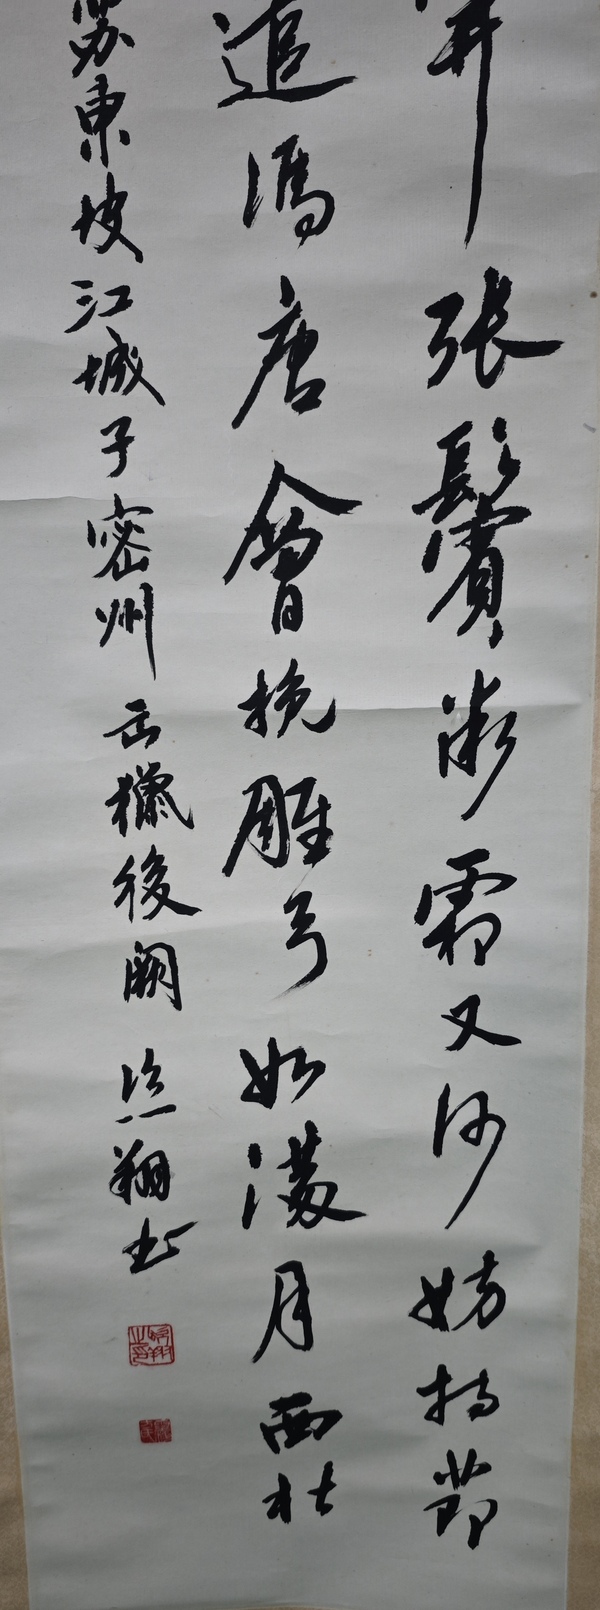 开張鬢微霜又何妨持節
遣馮唐會挽雕弓如滿月西北
苏東坡江城子密州出獵後闋 翔书